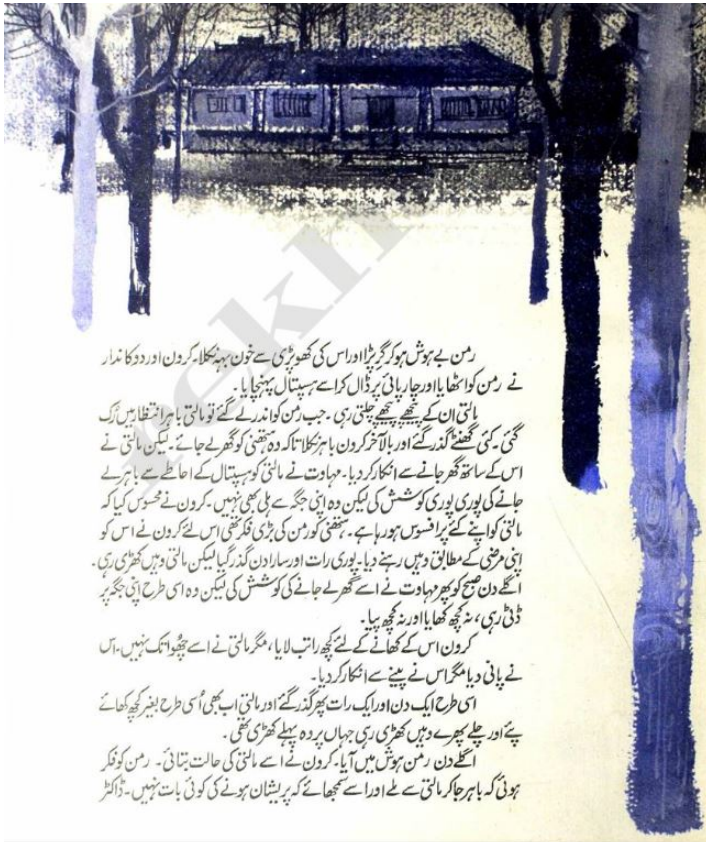 rekh
رمن بے ہوش ہو کر گر پڑا اور اس کی کھوپڑی سے خون بہہ نکلا۔ کرون اور دوکاندار
نے رمن کو اٹھایا اور چارپائی پر ڈال کر اسے ہسپتال پہنچایا۔
مالتی ان کے پیچھے پیچھے چلتی رہی۔ جب رمن کو اندر لے گئے تو مالتی باہر انتظار میں رک
گئی۔ کئی گھنٹے گذر گئے اور بالآخر کرون باہر نکلا تاکہ وہ ہتھنی کو گھر لے جائے۔ لیکن مالتی نے
اس کے ساتھ گھر جانے سے انکار کر دیا۔ مہاوت نے مالتی کو ہسپتال کے احاطے سے باہر لے
جانے کی پوری پوری کوشش کی لیکن وہ اپنی جگہ سے ہلی بھی نہیں۔ کرون نے محسوس کیا کہ
مالتی کو اپنے کئے پر افسوس ہو رہا ہے۔ ہتھنی کو رمن کی بڑی فکر تھی اس لئے کرون نے اس کو
اپنی مرضی کے مطابق وہیں رہنے دیا۔ پوری رات اور سارا دن گذر گیا لیکن مالتی وہیں کھڑی رہی۔
اگلے دن صبح کو پھر مہاوت نے اسے گھر لے جانے کی کوشش کی لیکن وہ اسی طرح اپنی جگہ پر
ڈٹی رہی، نہ کچھ کھایا اور نہ کچھ پیا۔
کرون اس کے کھانے کے لئے کچھ راتب لایا، مگر مالتی نے اسے چھوا تک نہیں۔ اس
نے پانی دیا مگر اس نے پینے سے انکار کر دیا۔
اسی طرح ایک دن اور ایک رات پھر گذر گئے اور مالتی اب بھی اُسی طرح بغیر کچھ کھائے
پئے اور چلے پھرے وہیں کھڑی رہی جہاں پر وہ پہلے کھڑی تھی۔
اگلے دن رمن ہوش میں آیا۔ کرون نے اسے مالتی کی حالت بتائی۔ رمن کو فکر
ہوئی کہ باہر جا کر مالتی سے ملے اور اسے سمجھائے کہ پریشان ہونے کی کوئی بات نہیں۔ ڈاکٹر